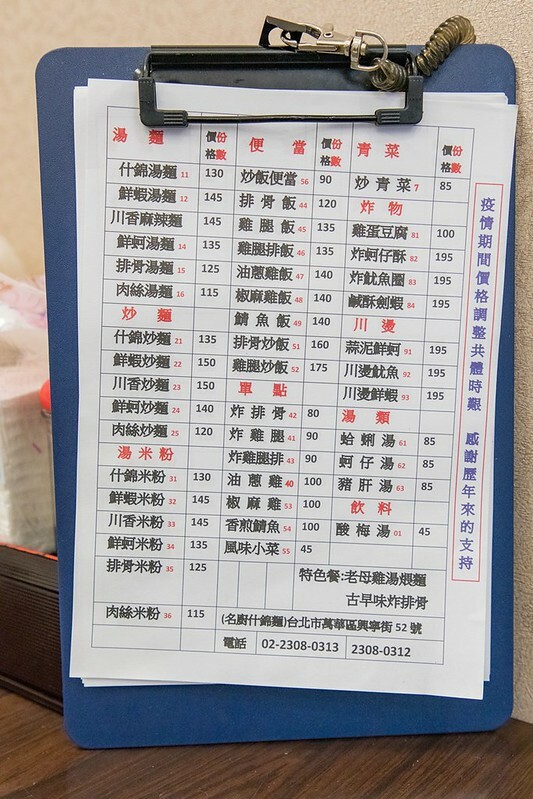 湯麵 價格 份數 便當 價格 份數 青菜 價格 份數
什錦湯麵 11 130 炒飯便當 56 90 炒青菜 7 85
鮮蝦湯麵 12 145 排骨飯 44 120 炸物
川香麻辣麵 145 雞腿飯 45 135 雞蛋豆腐 81 100
鮮蚵湯麵 14 135 雞腿排飯 46 135 炸蚵仔酥 82 195
排骨湯麵 15 125 油蔥雞飯 47 140 炸魷魚圈 83 195
肉絲湯麵 16 115 椒麻雞飯 48 140 鹹酥劍蝦 84 195
炒麵 鯖魚飯 49 140 川燙
什錦炒麵 21 135 排骨炒飯 51 160 蒜泥鮮蚵 91 195
鮮蝦炒麵 22 150 雞腿炒飯 52 175 川燙魷魚 92 195
川香炒麵 23 150 單點 川燙鮮蝦 93 195
鮮蚵炒麵 24 140 炸排骨 42 80 湯類
肉絲炒麵 25 120 炸雞腿 41 90 蛤蜊湯 61 85
湯米粉 炸雞腿排 43 90 蚵仔湯 62 85
什錦米粉 31 130 油蔥雞 40 100 豬肝湯 63 85
鮮蝦米粉 32 145 椒麻雞 53 100 飲料
川香米粉 33 145 香煎鯖魚 54 100 酸梅湯 01 45
鮮蚵米粉 34 135 風味小菜 55 45
排骨米粉 35 125 特色餐:老母雞湯煨麵
古早味炸排骨
肉絲米粉 36 115 (名廚什錦麵)台北市萬華區興寧街52號
電話 02-2308-0313 2308-0312
疫情期間價格調整共體時艱 感謝歷年來的支持